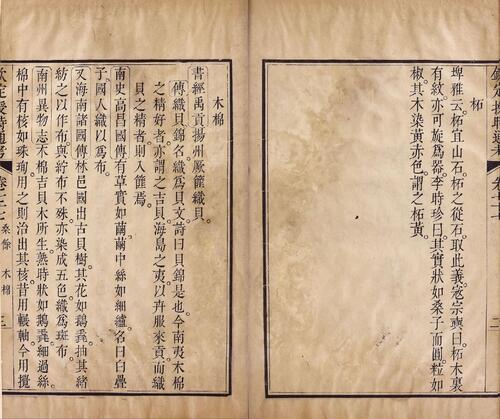 欽定授時通考
柘
埤雅云。柘宜山石。柘之從石取此義。寇宗奭曰。柘木裏
有紋。亦可旋爲器。李時珍曰。其實狀如桑子而圓。粒如
椒。其木染黃赤色。謂之柘黃。
木棉
書經禹貢揚州厥篚織貝。
傳織貝錦名。織爲貝文。詩曰貝錦是也。今南夷木棉
之精好者。亦謂之吉貝。海島之夷。以卉服來貢。而織
貝之精者。則入篚焉。
南史高昌國傳有草實如繭。繭中絲如細纑。名曰白疊
子。國人織以爲布。
又海南諸國傳林邑國出古貝樹。其花如鵝毳。抽其緒
紡之以作布。與紵布不殊。亦染成五色。織爲斑布。
南州異物志木棉吉貝木所生。熟時狀如鵝毳。細過絲
棉。中有核如珠珣。用之則治出其核。昔用輾軸。今用攪
欽定授時通考 卷七十七 桑餘 木棉 三